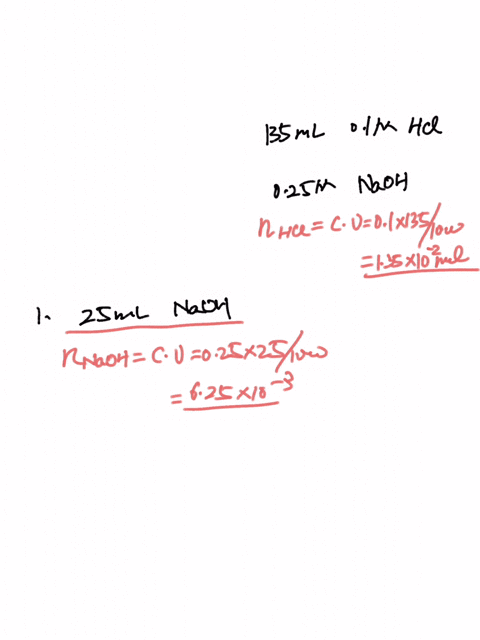 135mL 0.1M HCl
0.25M NaOH
nHCl = C.V = 0.1×135/1000
= 1.35×10⁻² mol
1. 25mL NaOH
nNaOH = C.V = 0.25×25/1000
= 6.25×10⁻³